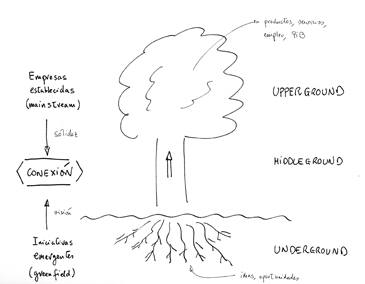 en productos, servicios,
empleo, PIB
Empresas
establecidas
(mainstream)
UPPERGROUND
solidez
CONEXIÓN
MIDDLEGROUND
visión
Iniciativas
emergentes
(greenfield)
UNDERGROUND
ideas, oportunidades